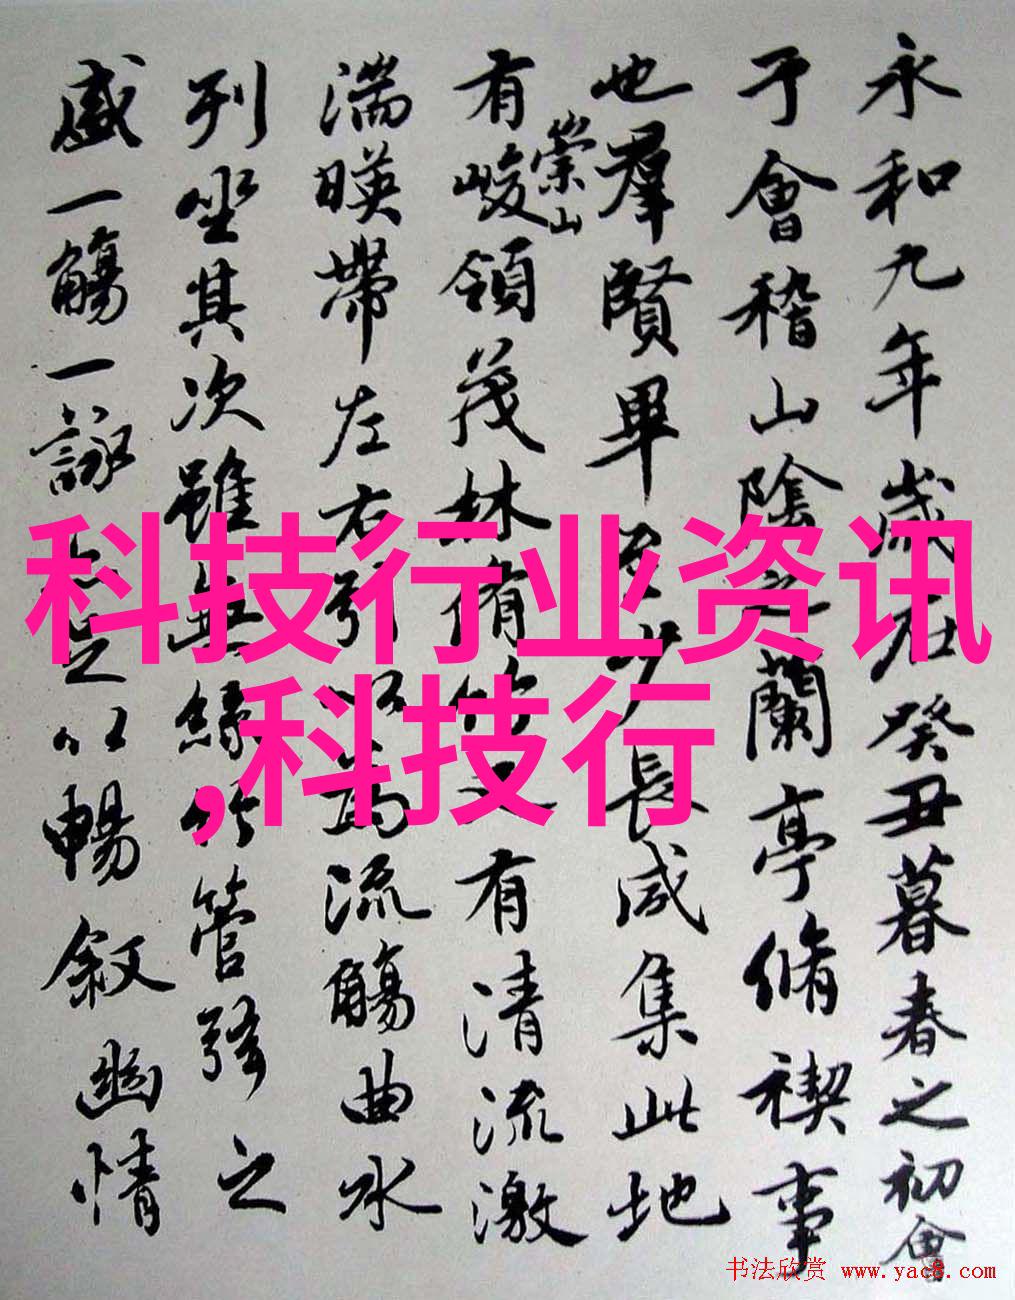 永和九年歲在癸丑暮春之初會
于會稽山陰之蘭亭脩禊事
也羣賢畢至少長咸集此地
有崇山峻領茂林脩竹又有清流激
湍暎帶左右引以為流觴曲水
列坐其次雖無絲竹管弦之
盛一觴一詠亦足以暢叙幽情
科技行业资讯
,科技行
书法欣赏 www.yac8.com